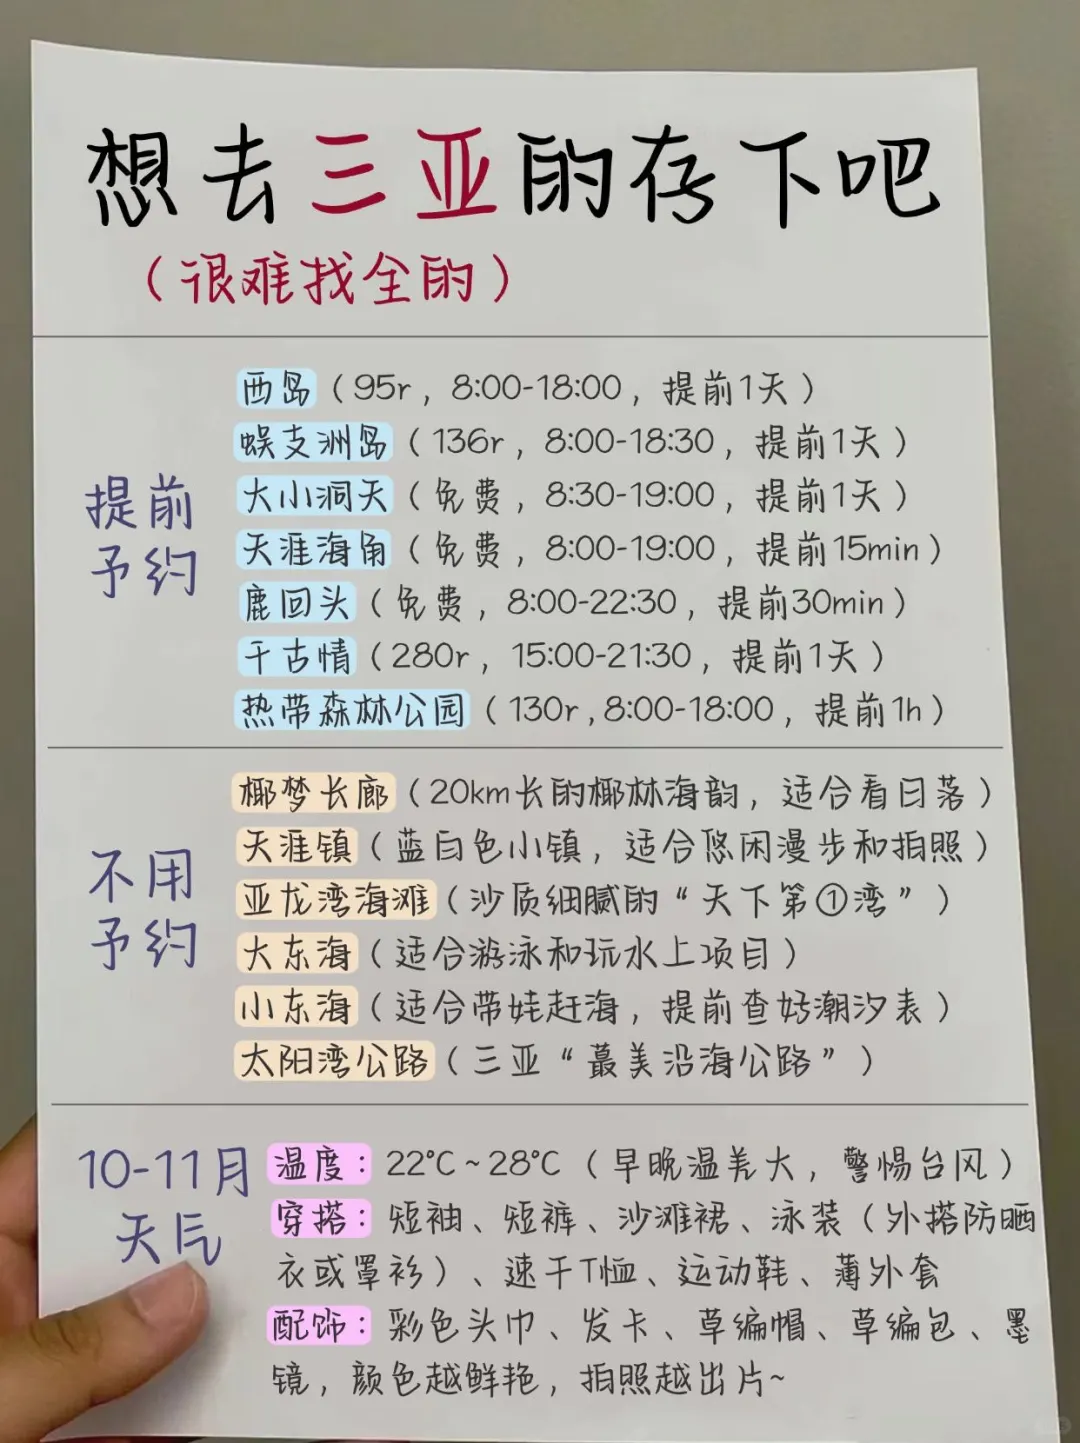 想去三亚的存下吧
（很难找全的）
提前
予约
西岛（95r，8:00-18:00，提前1天）
蜈支洲岛（136r，8:00-18:30，提前1天）
大小洞天（免费，8:30-19:00，提前1天）
天涯海角（免费，8:00-19:00，提前15min）
鹿回头（免费，8:00-22:30，提前30min）
千古情（280r，15:00-21:30，提前1天）
热带森林公园（130r,8:00-18:00，提前1h）
不用
予约
椰梦长廊（20km长的椰林海韵，适合看日落）
天涯镇（蓝白色小镇，适合悠闲漫步和拍照）
亚龙湾海滩（沙质细腻的“天下第①湾”）
大东海（适合游泳和玩水上项目）
小东海（适合带娃赶海，提前查好潮汐表）
太阳湾公路（三亚“蕞美沿海公路”）
10-11月
天气
温度：22°C~28°C（早晚温差大，警惕台风）
穿搭：短袖、短裤、沙滩裙、泳装（外搭防晒
衣或罩衫）、速干T恤、运动鞋、薄外套
配饰：彩色头巾、发卡、草编帽、草编包、墨
镜，颜色越鲜艳，拍照越出片~